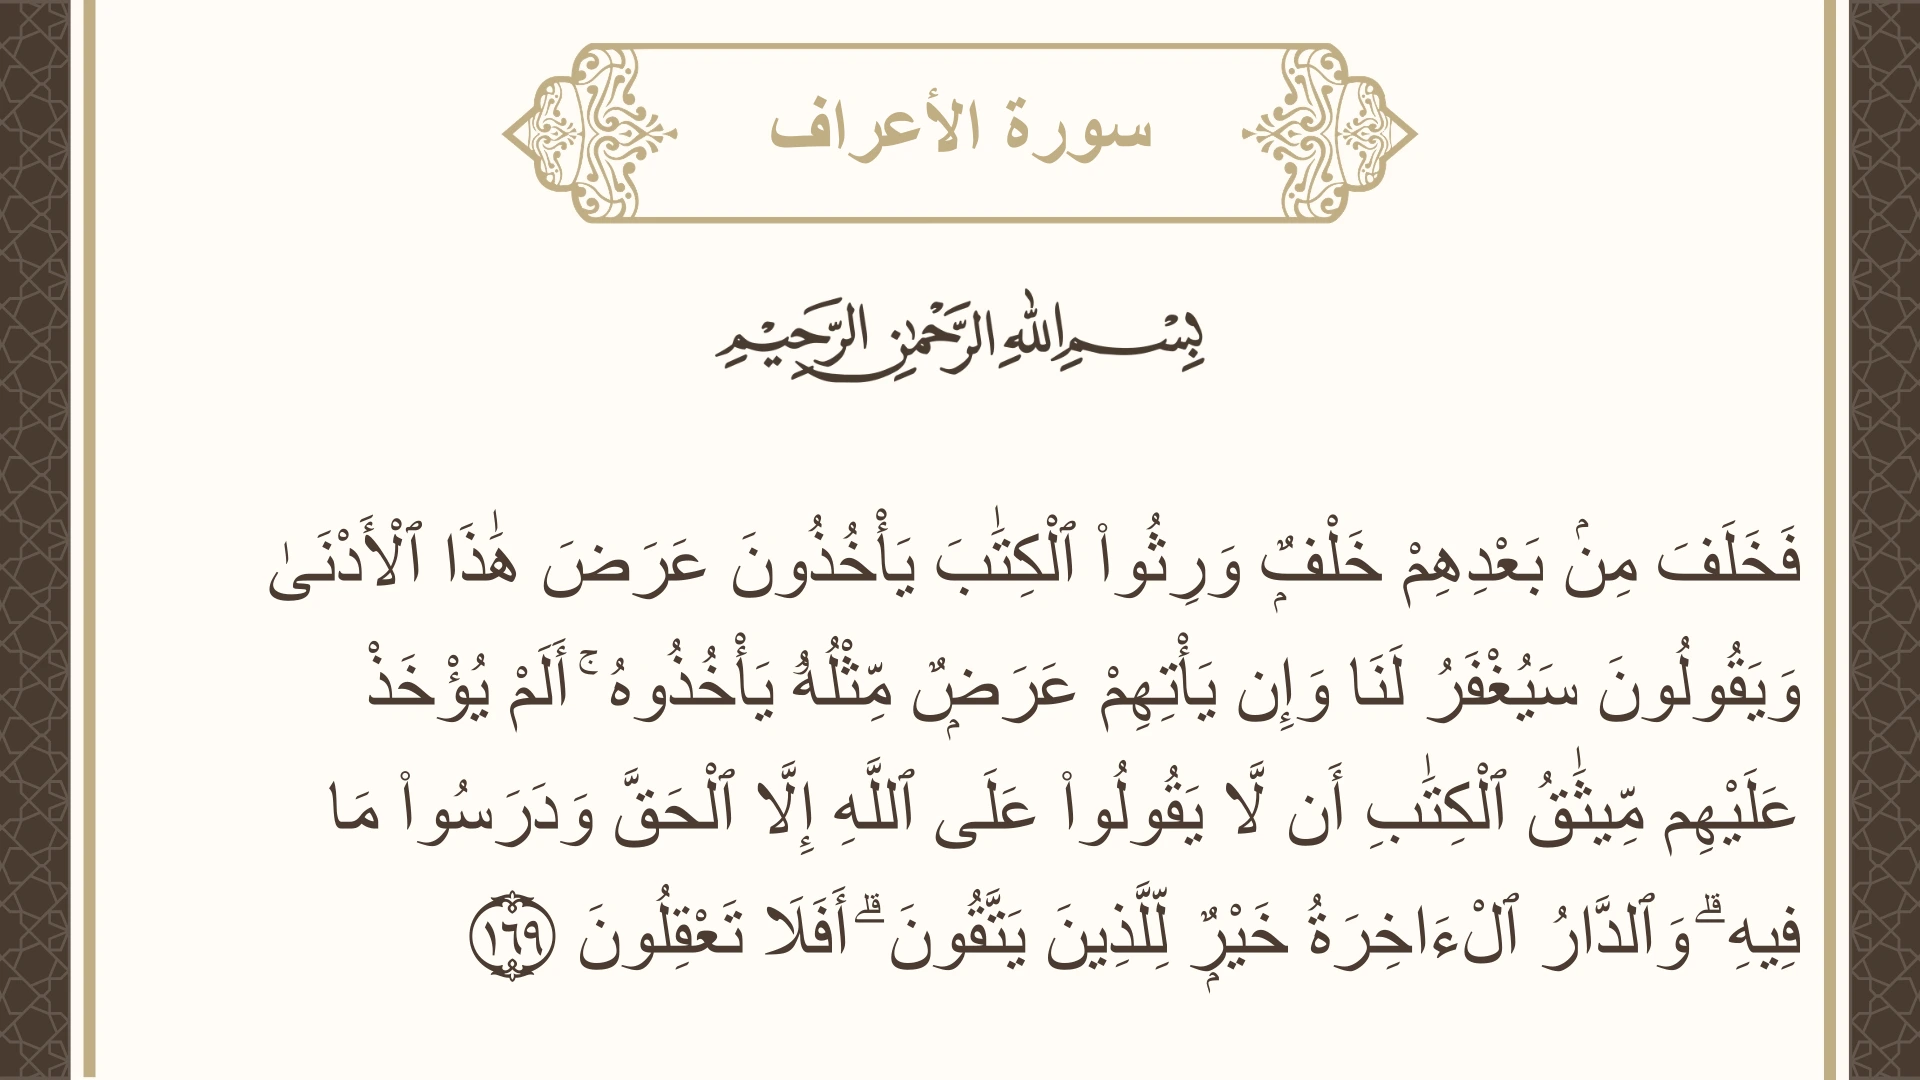 سورة الأعراف
بِسْمِ اللهِ الرَّحْمٰنِ الرَّحِيْمِ
فَخَلَفَ مِنۢ بَعْدِهِمْ خَلْفٌۭ وَرِثُوا۟ ٱلْكِتَـٰبَ يَأْخُذُونَ عَرَضَ هَـٰذَا ٱلْأَدْنَىٰ
وَيَقُولُونَ سَيُغْفَرُ لَنَا وَإِن يَأْتِهِمْ عَرَضٌۭ مِّثْلُهُۥ يَأْخُذُوهُ ۚ أَلَمْ يُؤْخَذْ
عَلَيْهِم مِّيثَـٰقُ ٱلْكِتَـٰبِ أَن لَّا يَقُولُوا۟ عَلَى ٱللَّهِ إِلَّا ٱلْحَقَّ وَدَرَسُوا۟ مَا
فِيهِ ۗ وَٱلدَّارُ ٱلْـَٔاخِرَةُ خَيْرٌۭ لِّلَّذِينَ يَتَّقُونَ ۗ أَفَلَا تَعْقِلُونَ ١٦٩